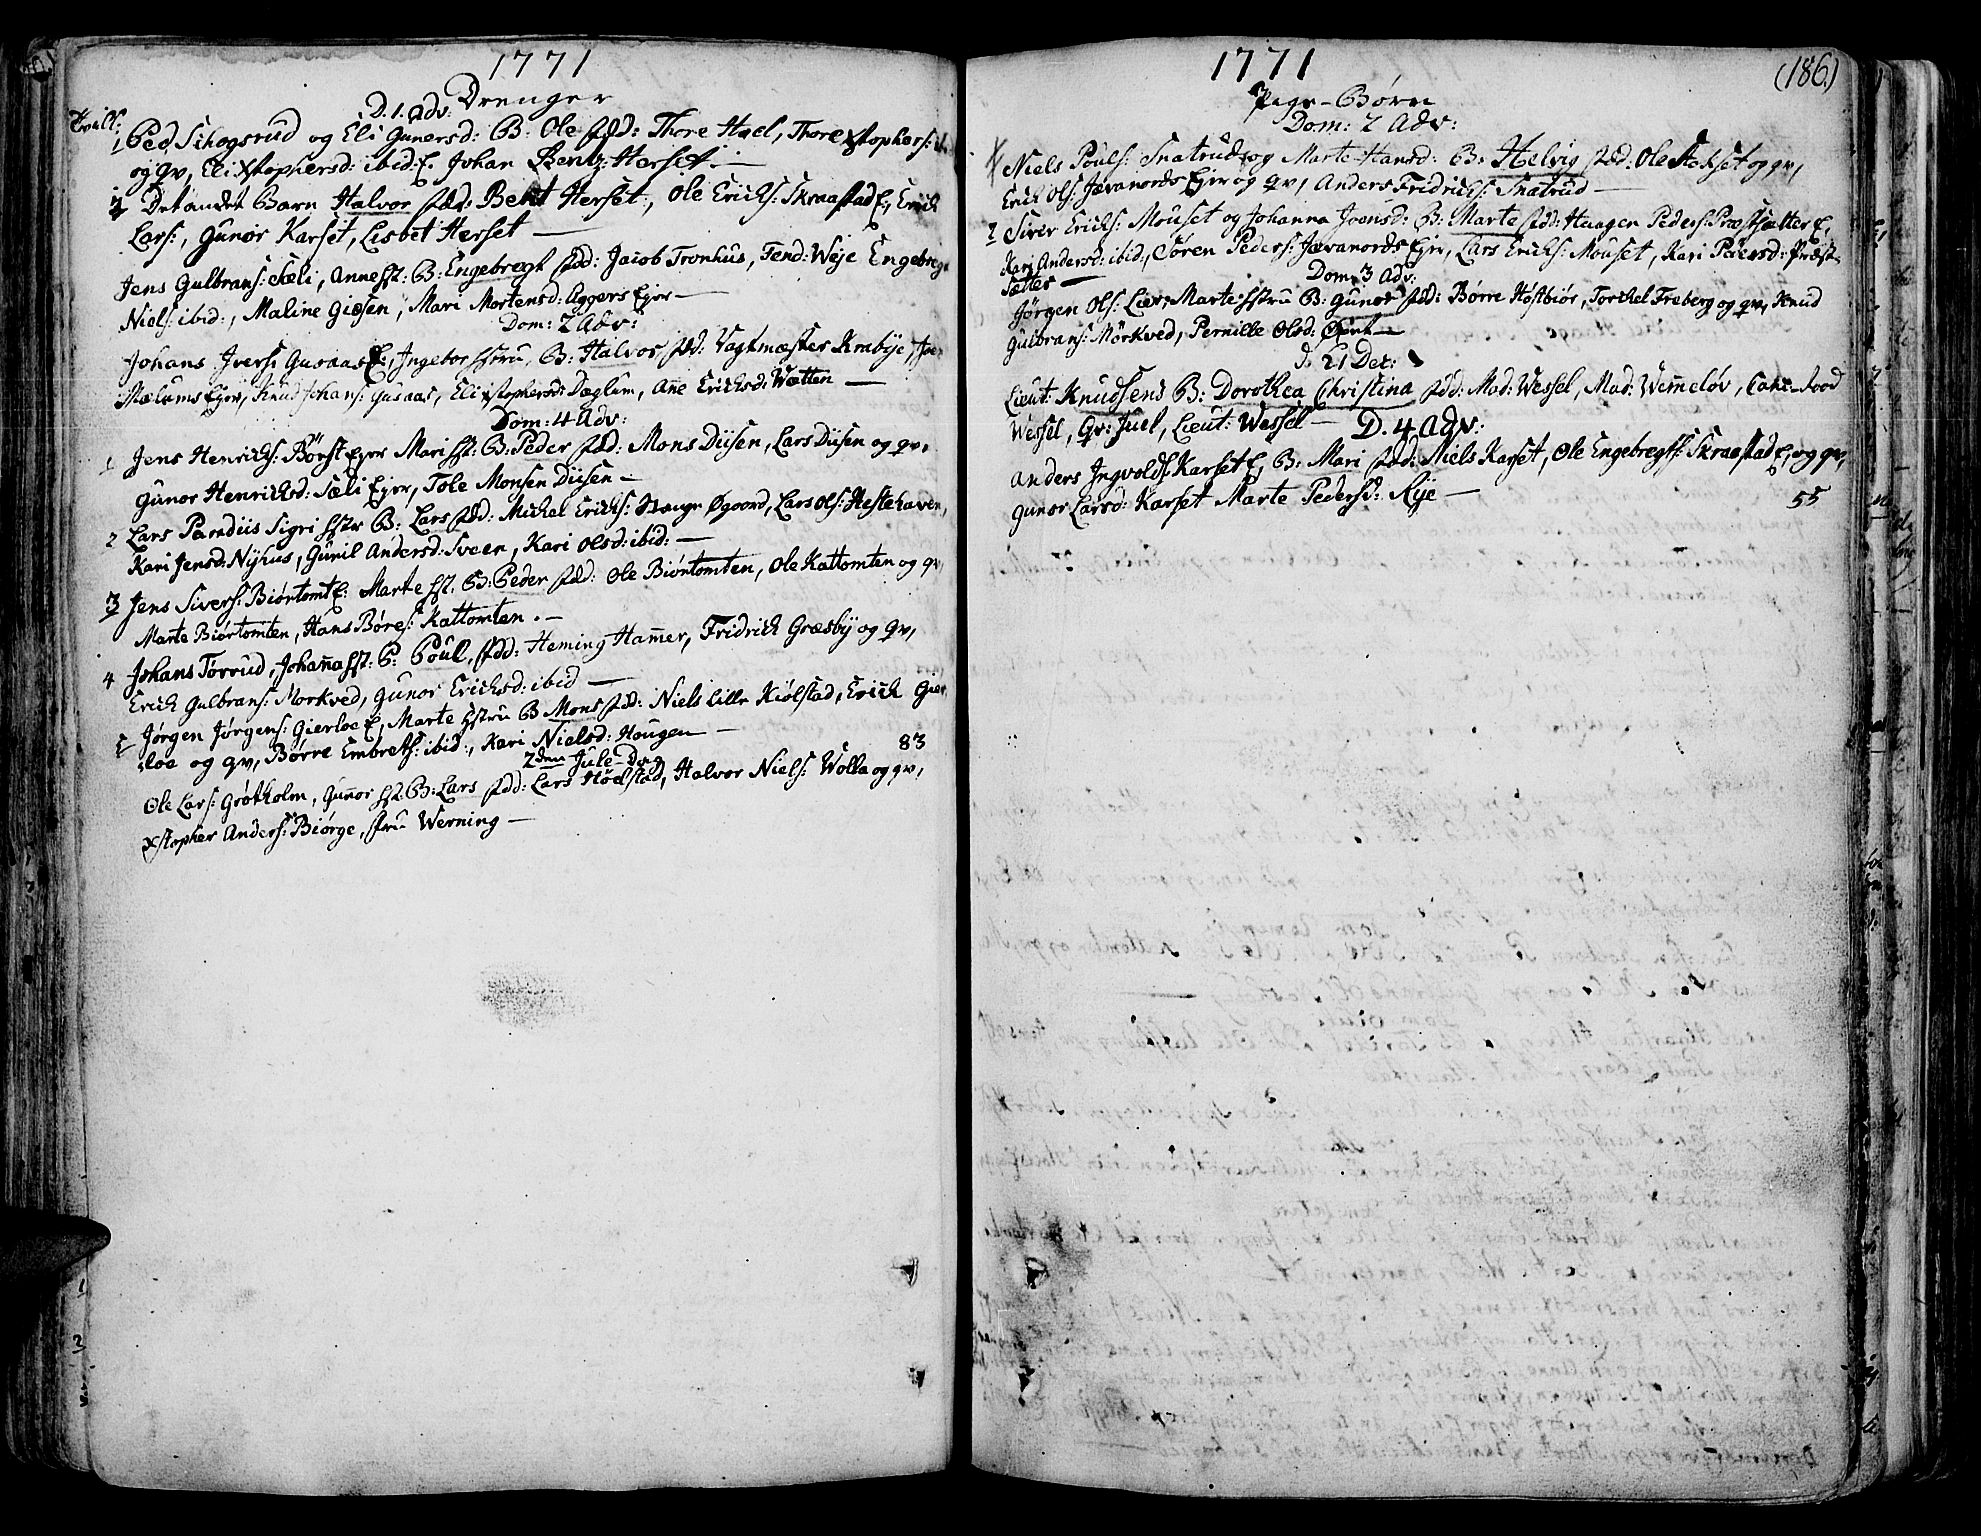 1771
Drenger
D. 1. Adv:
Tvill:
1 Ped. Schogsrud og Eli Gunersd: B: Ole fadd: Thore Hael, Thore Xstophers:
og qv, Eli Xstophersd: ibid: E. Johan Bentz: Herset. —
2 Det andet Barn Halvor fadd: Bent Herset:, Ole Erichs: Skraastad E:, Erich
Lars:, Gunor Karset, Lisbet Herset —
Jens Gulbrans: Sæli, Anne Hst: B: Engebregt fadd: Jacob Tronhus, Fend: Weje Engebregt
Niels: ibid:, Maline Giæsen, Mari Mortensd: Aggers Ejer —
Dom: 2 Adv:
Johans Ivers: Gusaas E:, Ingebor Hstru, B: Halvor fadd: Vagtmæster Krabye,
Mælums Ejer, Knud Johans: Gusaas, Eli Xstophersd: Dæglum, Ane Erichsd: Wætten —
Dom: 4 Adv:
1 Jens Henrichs: Børst Ejer Mari Hst: B: Peder fadd: Mons Diisen, Lars Diisen og qv,
Gunor Henrichsd: Sæli Ejer, Tole Monsen Diisen —
2 Lars Paradiis Sigri Hstr B: Lars fadd: Michel Erichs: Houge Øgoord, Lars Ols: Hestehaven,
Kari Jensd: Nyhus, Gunil Andersd: Sveen, Kari Olsd: ibid: —
3 Jens Sivers: Biørtomt E: Marte Hst. B: Peder fadd: Ole Biørtomten, Ole Kattomten og qv,
Marte Biørtomten, Hans Børes: Kattomten. —
4 Johans Tørrud, Johana Hst: B: Poul, fadd: Heming Hamer, Fridrich Græsby og qv,
Erich Gulbrans: Morkved, Gunor Erichsd: ibid —
5 Jørgen Jørgens: Gierloe E, Marte Hstru B Mons fadd: Niels Lille Kiølstad, Erich Gier
loe og qv, Børre Embrets: ibid:, Kari Nielsd: Hougen —
83
2den Jule-Dag
Ole Lars: Grøtholm, Gunor Hst. B: Lars fadd: Lars Hoelstad, Halvor Niels: Wolla og qv,
Xstopher Anders: Biørge, fru Werning —
1771
(186)
Pige-Børn
Dom: 2 Adv:
1 Niels Pouls: Snatrud og Marte Hansd: B: Helvig fad: Ole Stakset og qv,
Erich Ols: Jævanords Ejer og qv, Anders Fridrichs: Snatrud —
2 Siver Erichs: Mouset og Johanna Joensd: B: Marte fdd: Haagen Peders: Præstsætter E,
Kari Andersd: ibid:, Sören Peders: Jævanords Ejer, Lars Erichs: Mouset, Kari Pedersd: Præst
sætter —
Dom: 3 Adv:
Jørgen Ols: Lier, Marte Hstru B: Gunor fdd: Børre Høstbiør, Torchel Freberg og qv, Knud
Gulbrans: Mörkved, Pernille Olsd:
d. 21 Dec:
Lieut: Knudsens B: Dorothea Christina fdd: Mad: Wessel, Mad: Wemeløv,
Wessel, Hr: Juel, Lieut: Wessel — D. 4 Adv:
Anders Ingvolds: Karset E, B: Mari fdd: Niels Karset, Ole Engebregts: Skraastad E, og qv,
Gunor Larsd: Karset Marte Pedersd: Rye —
55